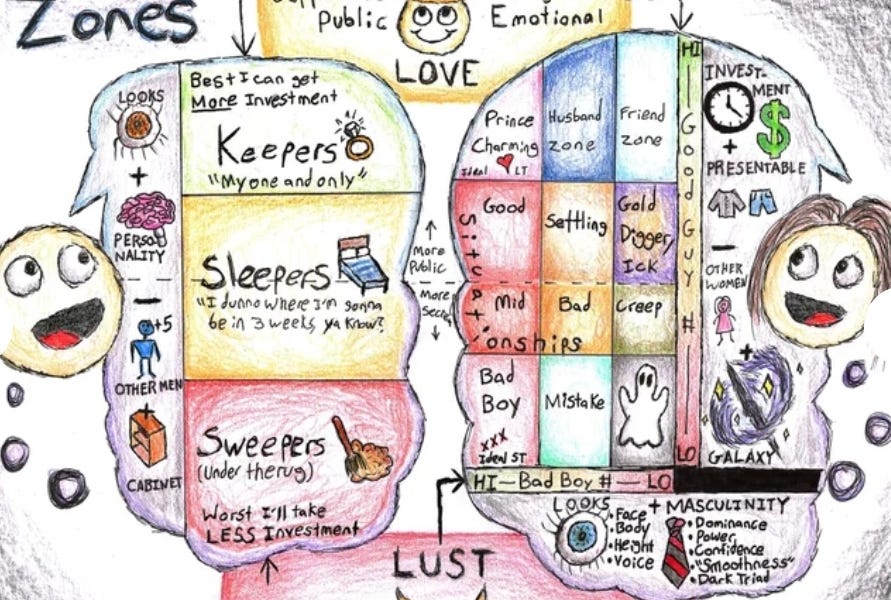 Zones
Public
Emotional
LOVE
LOOKS
+
PERSO
NALITY
-
+5
OTHER MEN
+
CABINET
Best I can get
More Investment
Keepers
"My one and only"
Sleepers
"I dunno where I'm gonna
be in 3 weeks, ya know?
Sweepers
(Under the rug)
Worst I'll take
LESS Investment
More
Public
More
Secre
Prince
Charming
Ideal LT
Husband
zone
Friend
zone
Good
Settling
Gold
Digger,
Ick
Mid
Bad
Creep
Situationships
Bad
Boy
xxx
Ideal ST
Mistake
HI
Good Guy #
LO
HI-Bad Boy #-LO
INVEST-
MENT
$
+
PRESENTABLE
-
OTHER
WOMEN
+
GALAXY
LOOKS
•Face
•Body
•Height
•Voice
+ MASCULINITY
•Dominance
•Power
•Confidence
•"Smoothness"
•Dark Triad
LUST